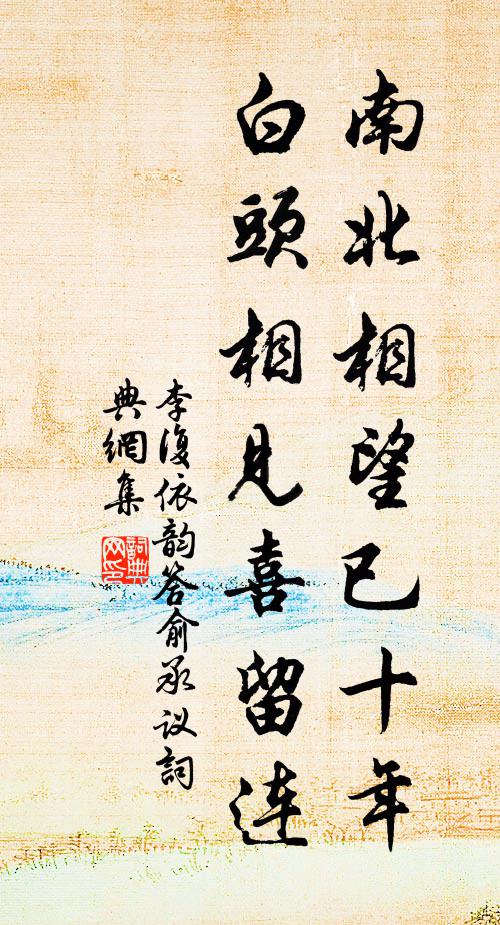 南北相望已十年
白頭相見喜留连
李復依韵答俞承议詞
典網集
詞典网印